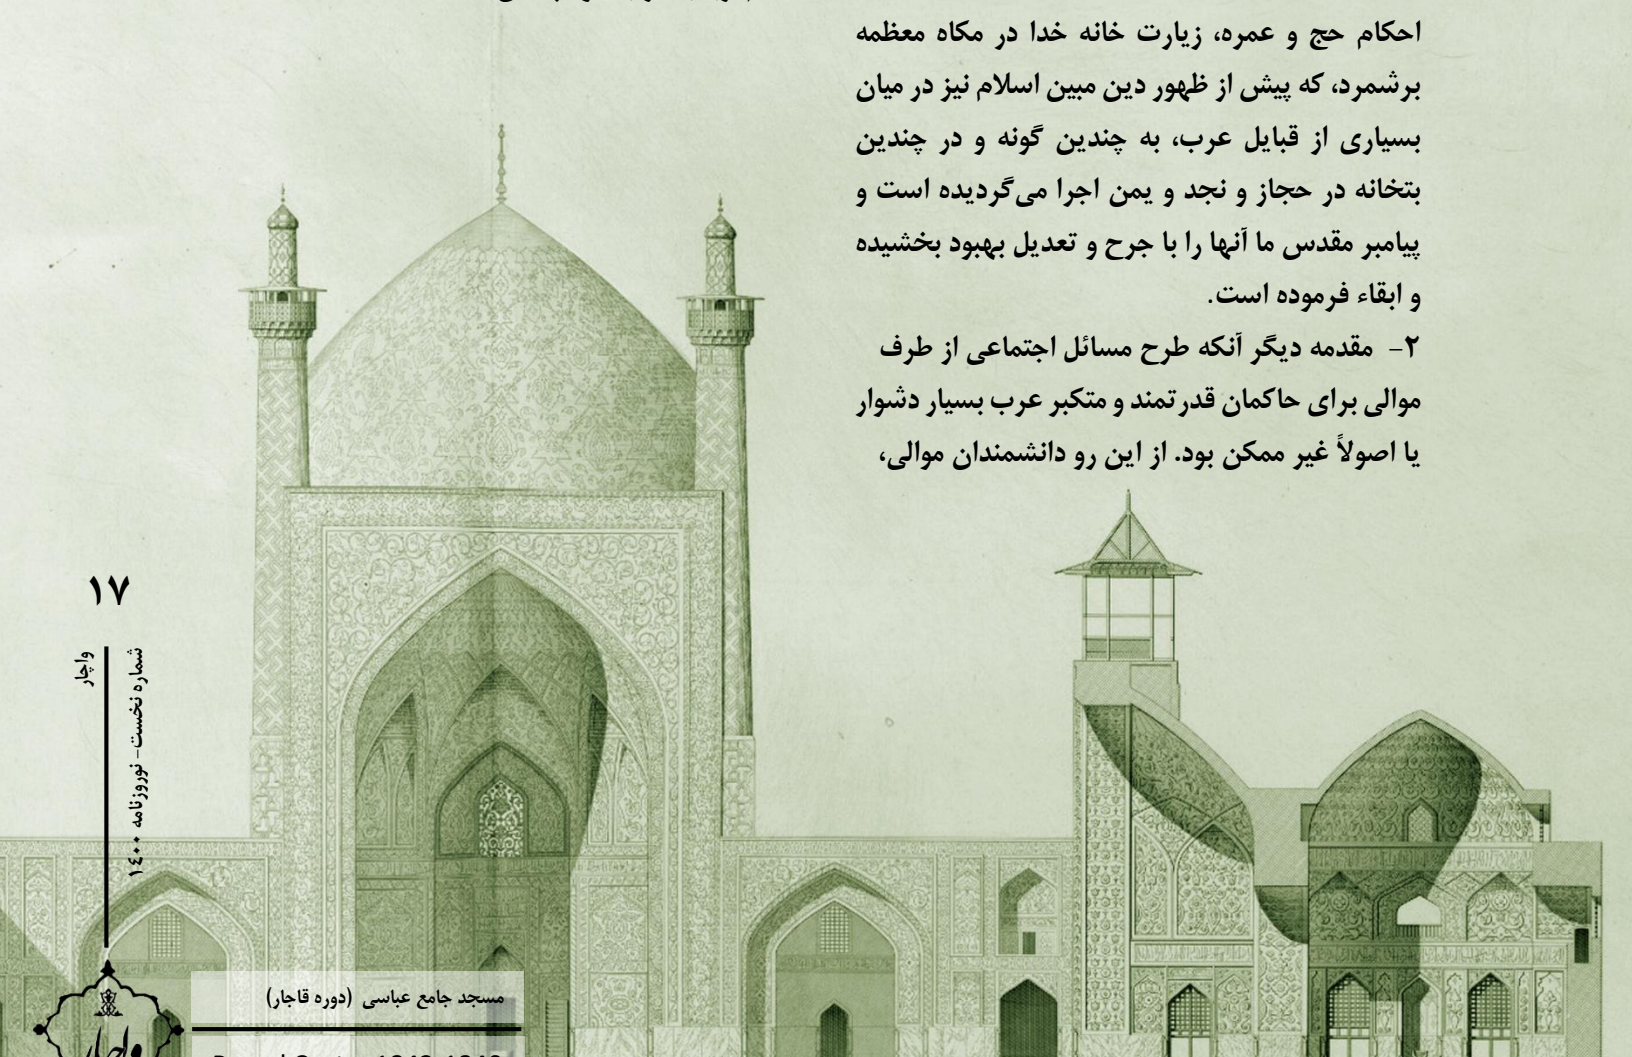 احکام حج و عمره، زیارت خانه خدا در مکاه معظمه
برشمرد، که پیش از ظهور دین مبین اسلام نیز در میان
بسیاری از قبایل عرب، به چندین گونه و در چندین
بتخانه در حجاز و نجد و یمن اجرا می‌گردیده است و
پیامبر مقدس ما آنها را با جرح و تعدیل بهبود بخشیده
و ابقاء فرموده است.
۲- مقدمه دیگر آنکه طرح مسائل اجتماعی از طرف
موالی برای حاکمان قدرتمند و متکبر عرب بسیار دشوار
یا اصولاً غیر ممکن بود. از این رو دانشمندان موالی،
۱۷
واچار
شماره نخست- نوروزنامه ۱۴۰۰
واچار
مسجد جامع عباسی (دوره قاجار)